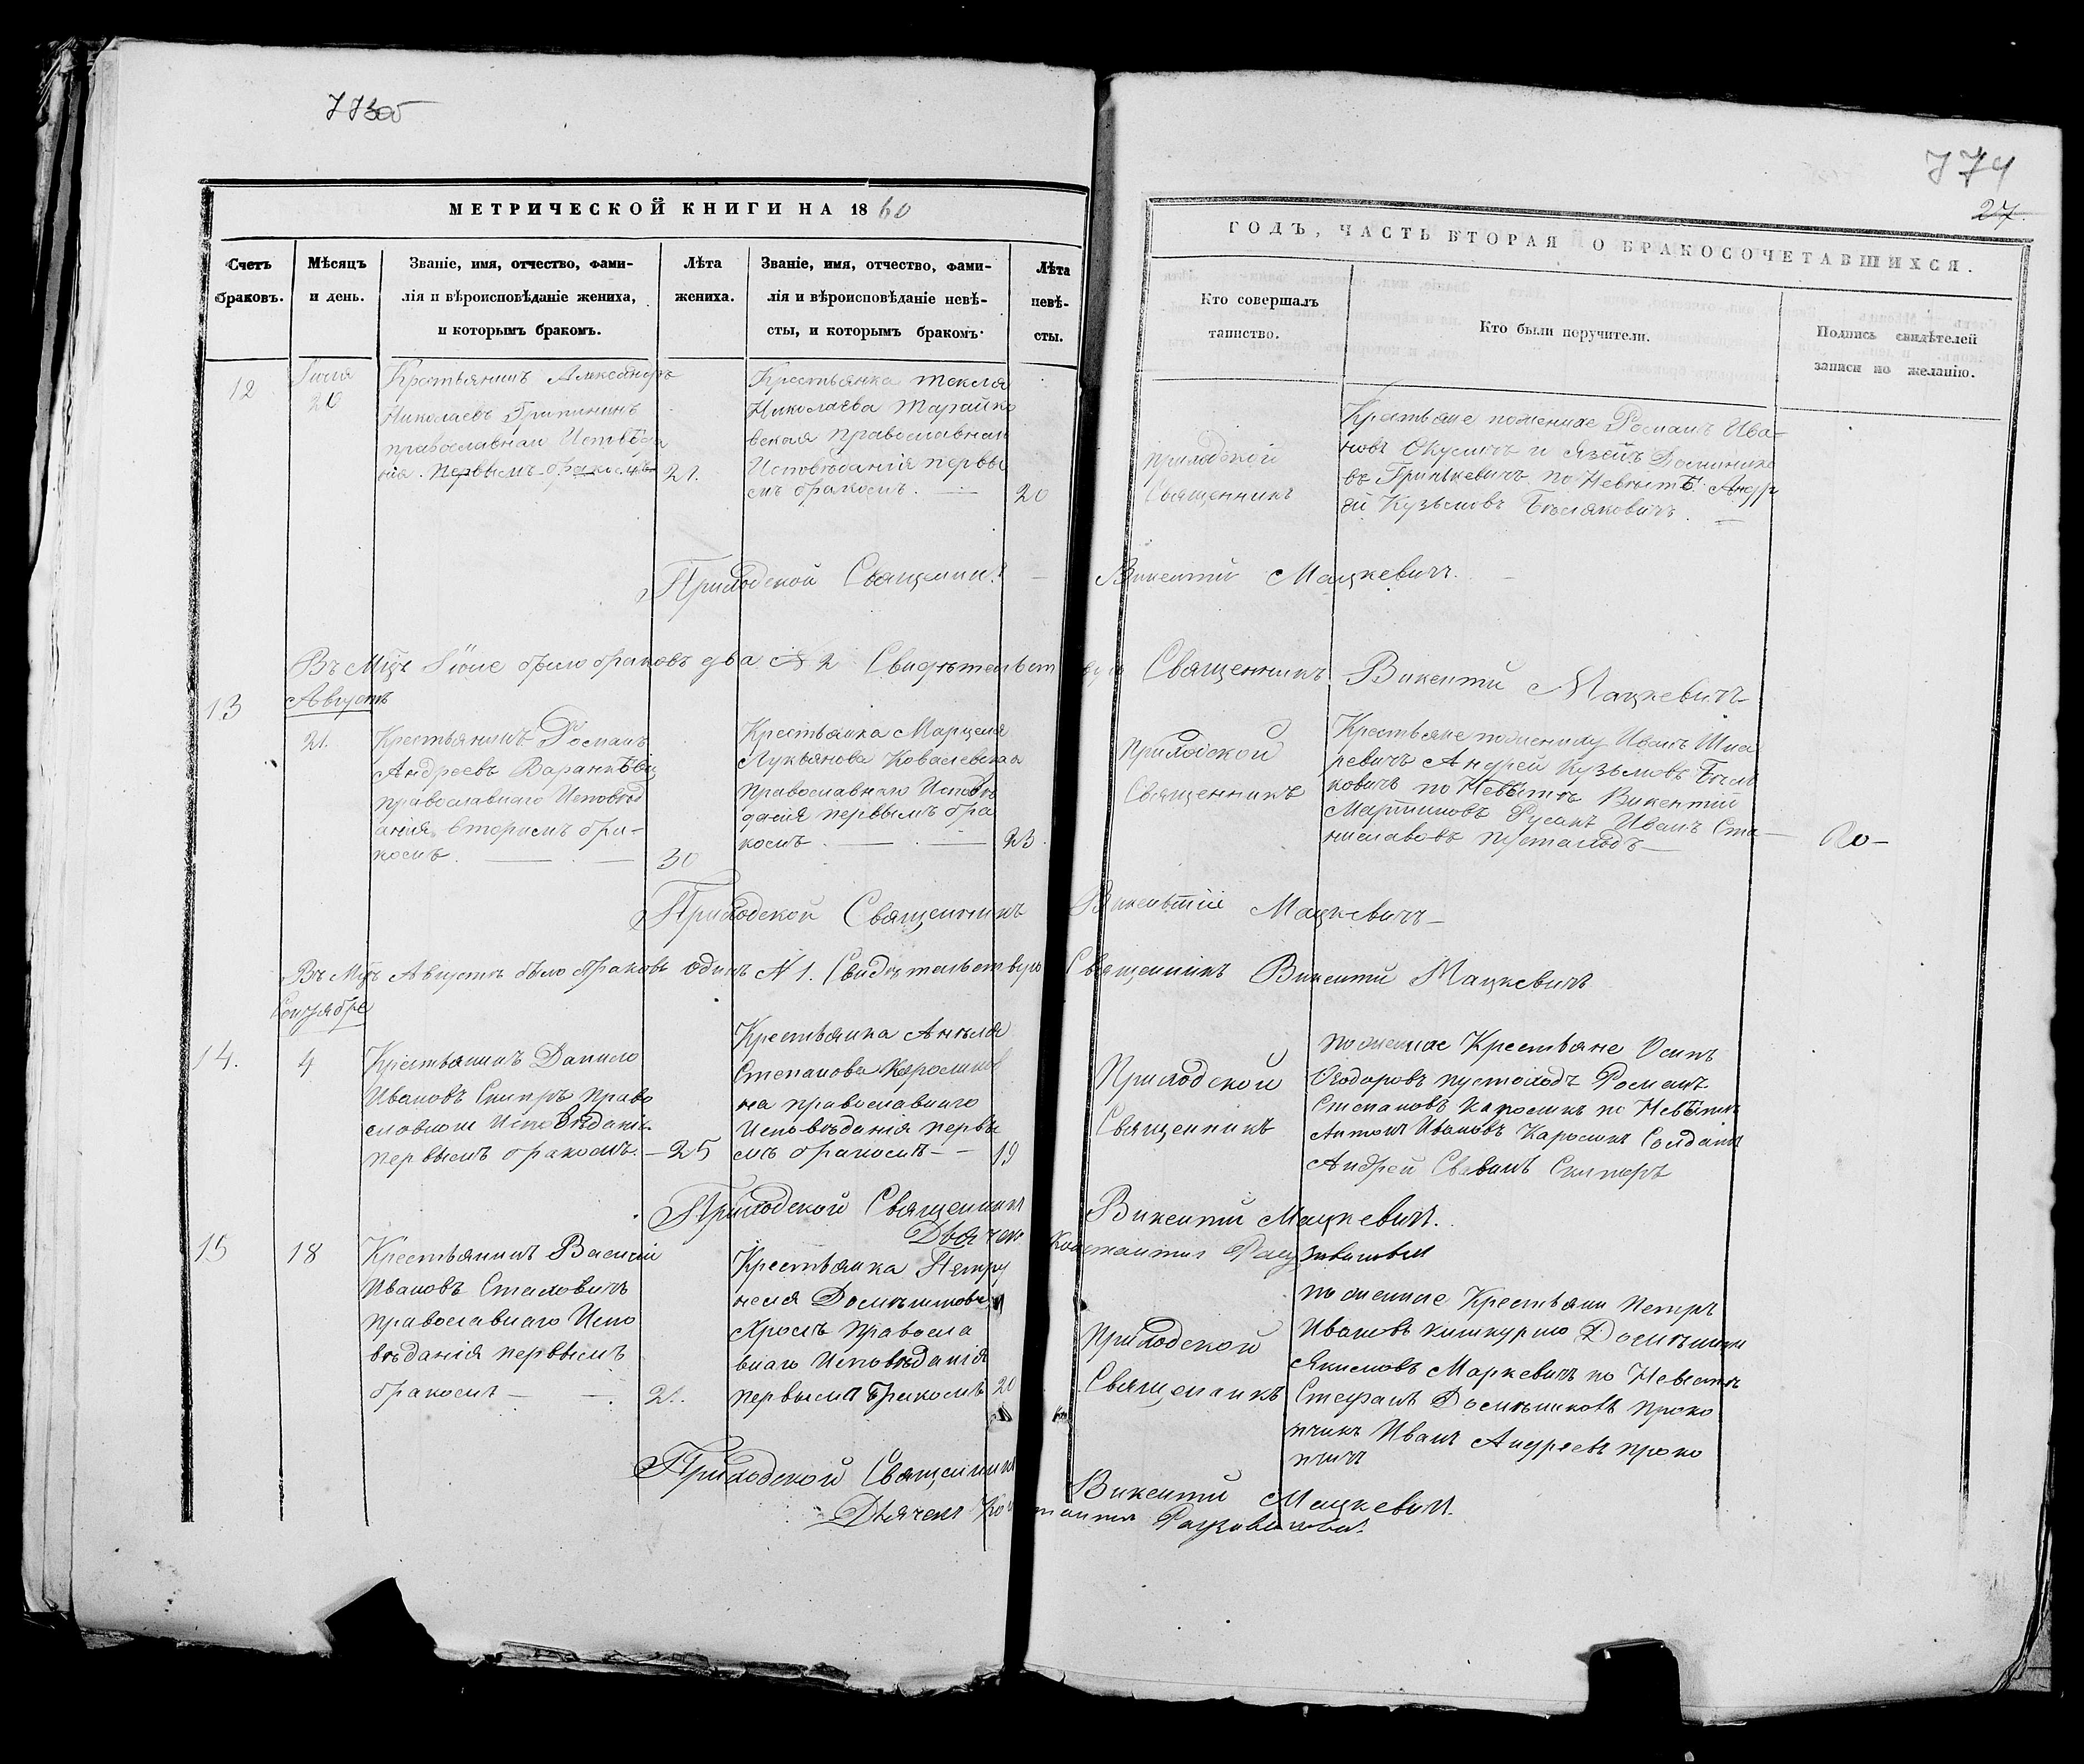 774
27
МЕТРИЧЕСКОЙ КНИГИ НА 1860
ГОДЪ, ЧАСТЬ ВТОРАЯ О БРАКОСОЧЕТАВШИХСЯ.
Счетъ
браковъ.
Мѣсяцъ
и день.
Званіе, имя, отчество, фами-
лія и вѣроисповѣданіе жениха,
и которымъ бракомъ.
Лѣта
жениха.
Званіе, имя, отчество, фами-
лія и вѣроисповѣданіе невѣ-
сты, и которымъ бракомъ.
Лѣта
невѣ-
сты.
Кто совершалъ
таинство.
Кто были поручители.
Подпись свидѣтелей
записи по желанію.
12
20
Крестьянинъ Александръ
Николаевъ
православнаго Исповѣда
нія. первымъ бракомъ
21.
Крестьянка Текля
Николаева Тарайко
вская Православнаго
Исповѣданія первы
мъ бракомъ. —
20
Приходской
Священникъ
Крестьяне по женихе Романъ Ива-
новъ и Доминико
въ Гринкевичъ по Невѣстѣ Андр
ей Кузьмовъ Бѣляковичъ. —
Приходской Священникъ — Викентій Мацкевичъ. —
Въ Мцѣ было браковъ два N 2 Свидѣтельствую Священникъ Викентій Мацкевичъ
Августъ
13
21.
Крестьянинъ Романъ
Андреевъ
православнаго Исповѣд
анія вторымъ бра-
комъ. — —
30
Крестьянка Марцеля
Лукьянова Ковалевская
православнаго Исповѣ
данія первымъ бра
комъ. — . —
23.
Приходской
Священникъ
Крестьяне по жениху Иванъ Шна
ревичъ Андрей Кузьмовъ Бѣля
ковичъ по Невѣстѣ Викентій
Мартиновъ Русакъ Иванъ Ста-
ниславовъ Пустаходъ —
Приходской Священникъ Викентій Мацкевичъ —
Въ Мцѣ Августѣ было браковъ одинъ N 1. Свидѣтельствую Священникъ Викентій Мацкевичъ
Сентябре
14.
4
Крестьянинъ Данило
Ивановъ Право
славнаго Исповѣданія
первымъ бракомъ. —
25
Крестьянка Анеля
Степанова
на православнаго
Исповѣданія первы
мъ бракомъ — —
19
Приходской
Священникъ
по женихе Крестьяне Осипъ
Ѳодоровъ Пустоходъ Романъ
Степановъ Кароликъ по Невѣстѣ
Антонъ Ивановъ Каролик Солдатъ
Андрей
Приходской Священникъ Викентій Мацкевичъ.
Дьячекъ Константинъ
15
18
Крестьянинъ Василій
Ивановъ Стаховичъ
православнаго Испо
вѣданія первымъ
бракомъ — — .
21.
Крестьянка Петру
неля
православ
наго Исповѣданія
первымъ бракомъ
20
Приходской
Священникъ
по женихе Крестьяни Петръ
Ивановъ
Якимовъ Маркевичъ по Невѣстѣ
Стефанъ Домениковъ Проко
пчикъ Иванъ Андреевъ Проко
пчикъ
Приходской Священникъ Викентій Мацкевичъ.
Дьячекъ Константинъ